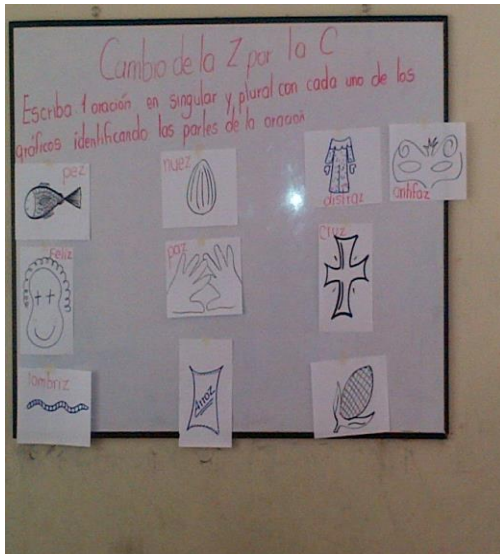 Cambio de la Z por la C
Escriba 1 oración en singular y plural con cada uno de los
gráficos identificando las partes de la oración
pez
nuez
disfraz
antifaz
Feliz
paz
cruz
lombriz
Arroz